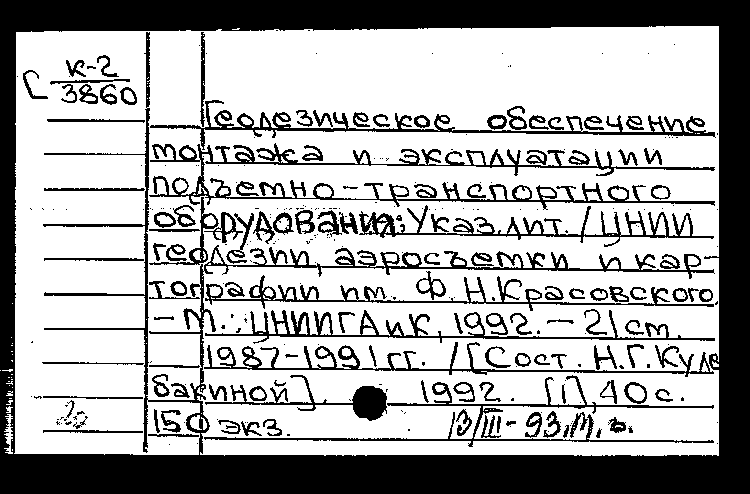 Г К-2
3860
Геодезическое обеспечение
монтажа и эксплуатации
подъемно-транспортного
оборудования: Указ. лит. / ЦНИИ
геодезии, аэросъемки и кар-
тографии им. Ф. Н. Красовского.
- М.: ЦНИИГАиК, 1992. - 21 см.
1987-1991 гг. / [Сост. Н. Г. Куле
бакиной]. 1992. [1], 40 с.
20 150 экз. 13/III-93. М.